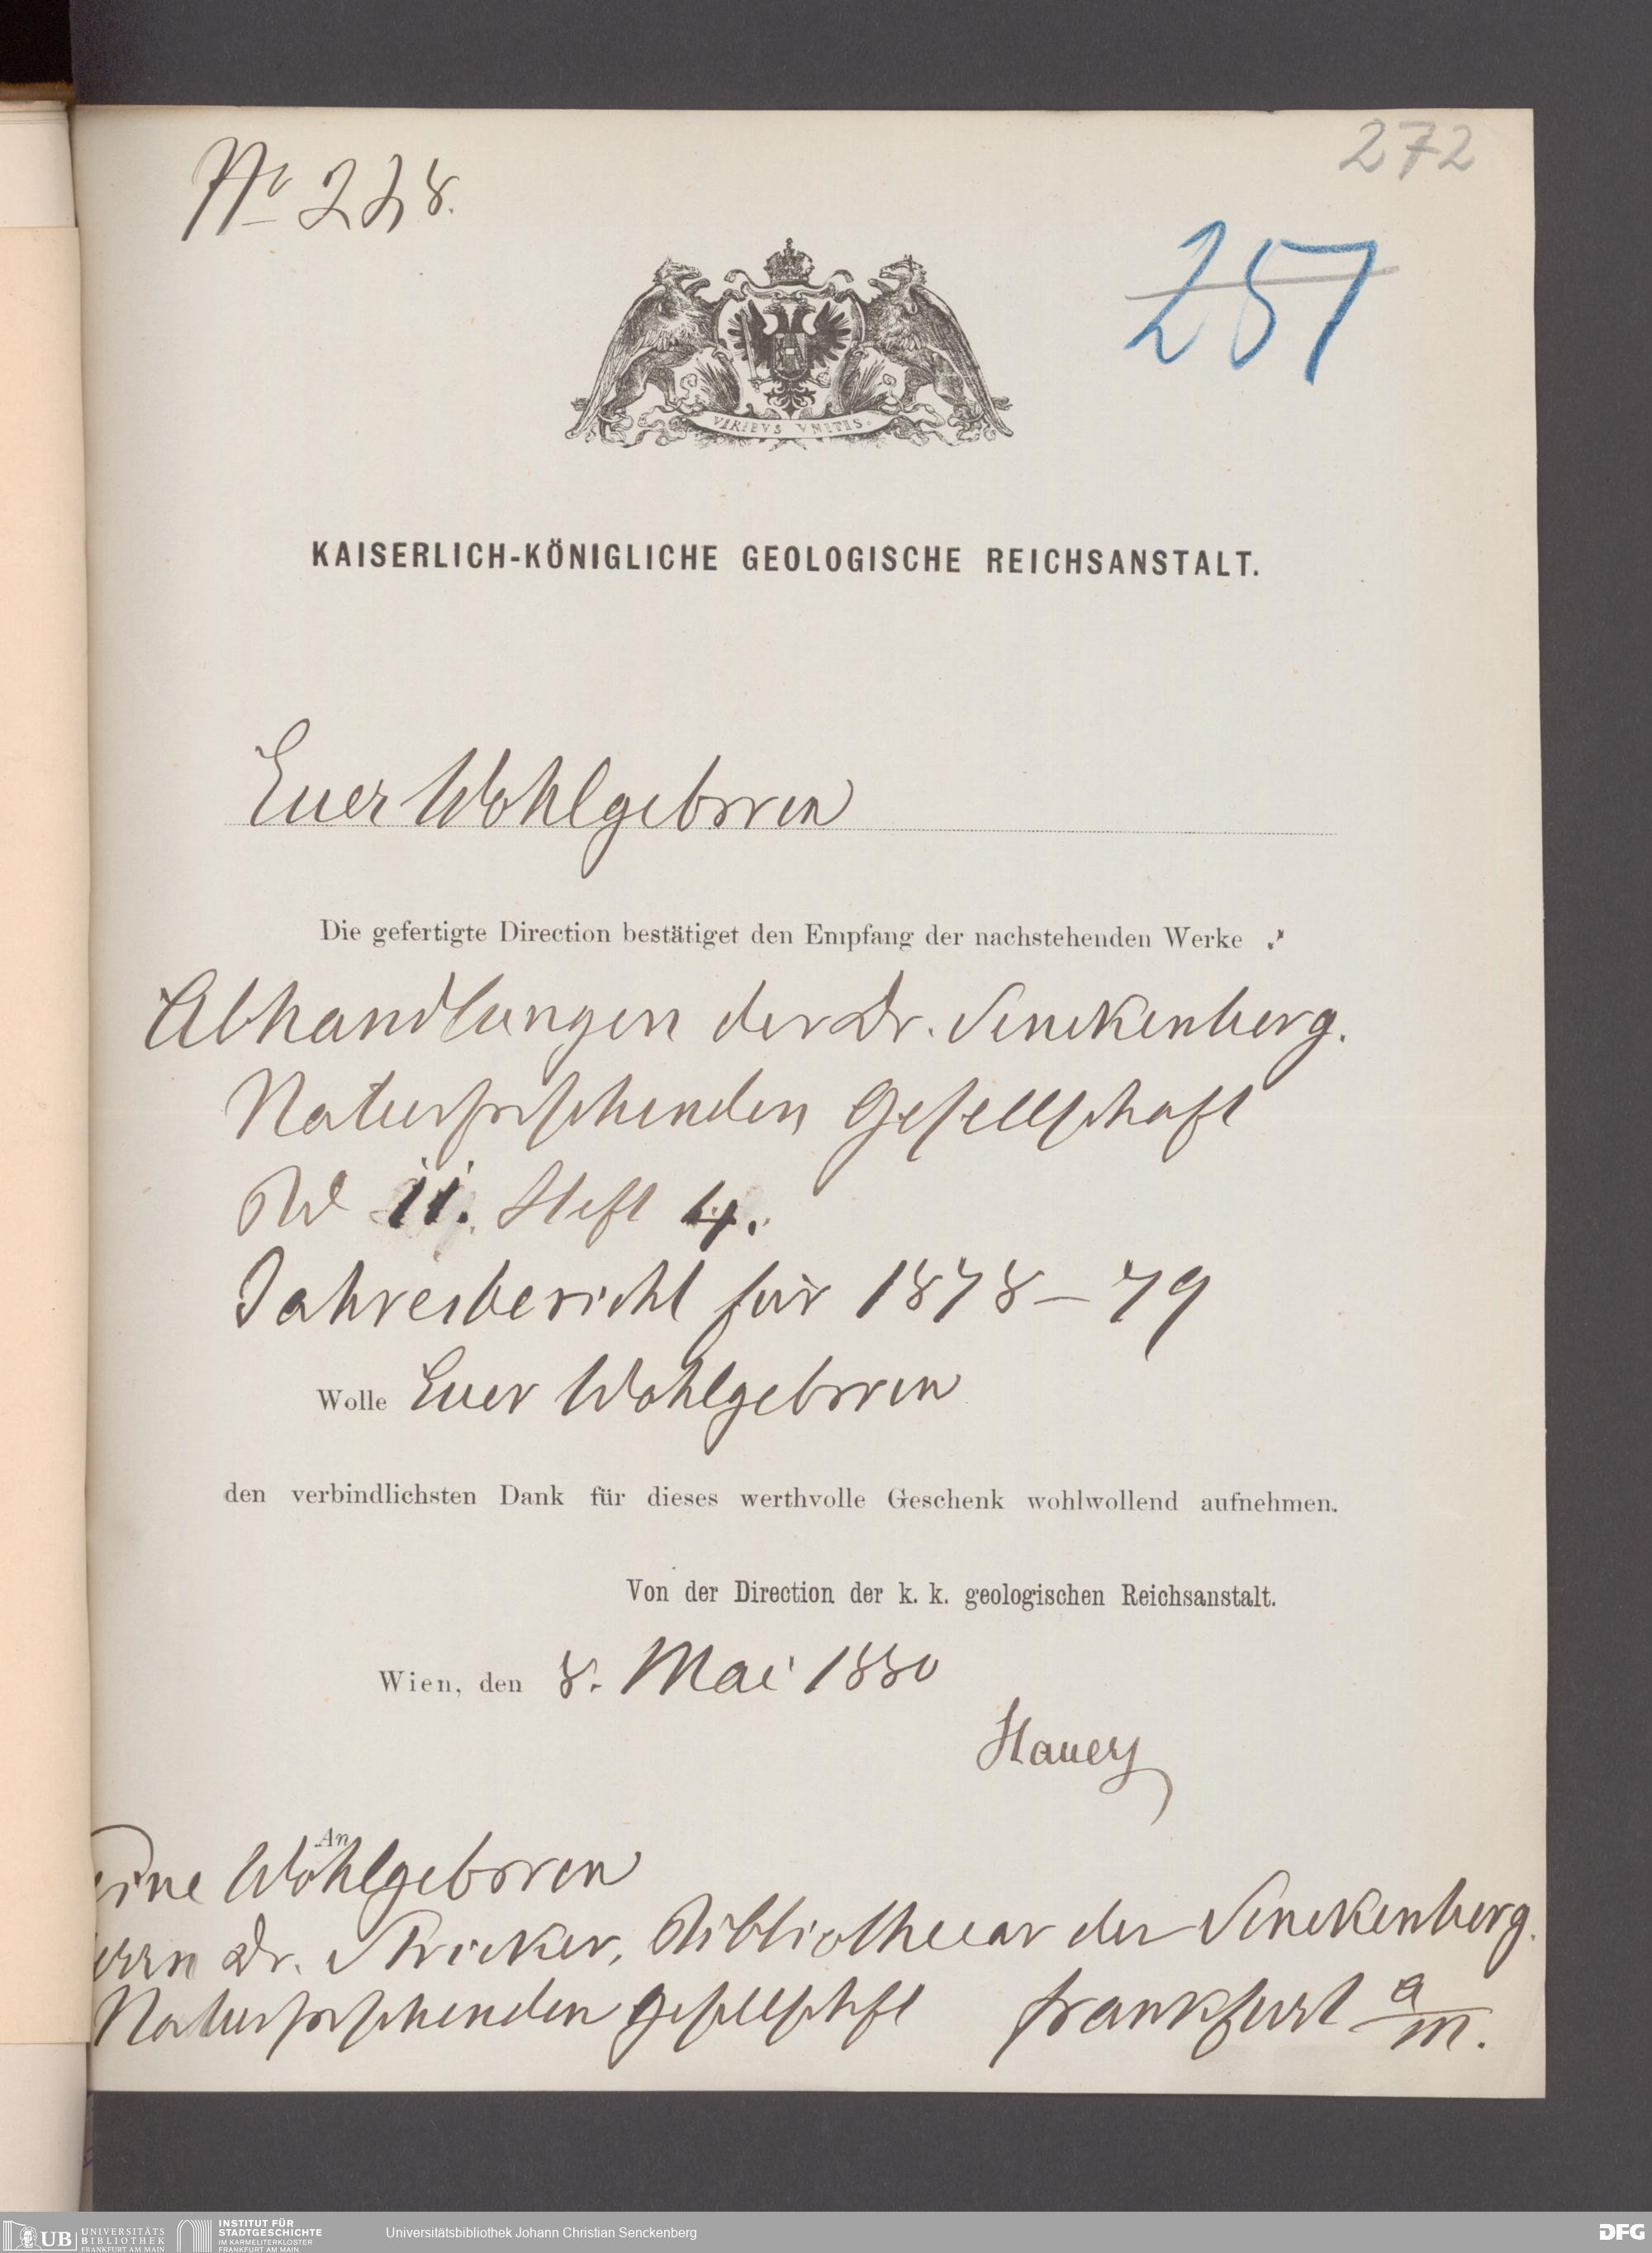 272
No 228.
257
VIRIBVS VNITIS.
KAISERLICH-KÖNIGLICHE GEOLOGISCHE REICHSANSTALT.
Euer Wohlgeboren
Die gefertigte Direction bestätiget den Empfang der nachstehenden Werke :
Abhandlungen der Dr. Senckenberg.
Naturforschenden Gesellschaft
Bd 11. Heft 4.
Jahresbericht für 1878–79
Wolle Euer Wohlgeboren
den verbindlichsten Dank für dieses werthvolle Geschenk wohlwollend aufnehmen.
Von der Direction der k. k. geologischen Reichsanstalt.
Wien, den 8. Mai 1880
Hauer
An
Seine Wohlgeboren
Herrn Dr. Stricker, Bibliothecar der Senckenberg.
Naturforschenden Gesellschft Frankfurt a/m.
UB UNIVERSITÄTS
BIBLIOTHEK
FRANKFURT AM MAIN
INSTITUT FÜR
STADTGESCHICHTE
IM KARMELITERKLOSTER
FRANKFURT AM MAIN
Universitätsbibliothek Johann Christian Senckenberg
DFG